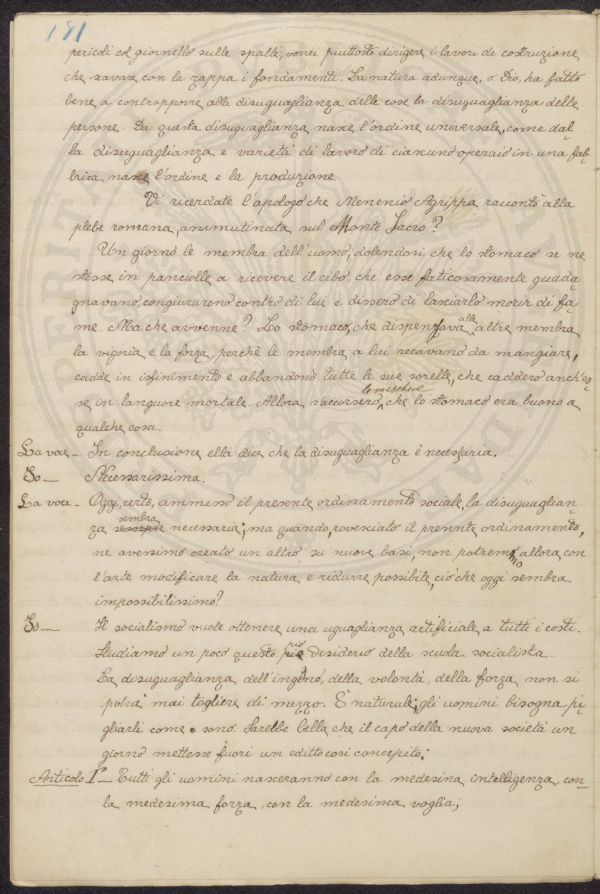 181
pericoli col giornello sulle spalle; vorrei piuttosto dirigere i lavori di costruzione
che scavare con la zappa i fondamenti. La natura adunque, o Dio, ha fatto
bene a contrapporre alla disuguaglianza delle cose la disuguaglianza delle
persone. Da questa disuguaglianza nasce l'ordine universale, come dal-
la disuguaglianza e varietà di lavoro di ciascuno operaio in una fab-
brica nasce l'ordine e la produzione.
Vi ricordate l'apologo che Menenio Agrippa raccontò alla
plebe romana, ammutinata sul Monte Sacro?
Un giorno le membra dell'uomo, dolendosi che lo stomaco se ne
stesse in panciolle a ricevere il cibo che esse faticosamente guada-
gnavano, congiurarono contro di lui e dissero di lasciarlo morir di fa-
me. Ma che avvenne? Lo stomaco, che dispensava alle altre membra
la vigoria e la forza, perchè le membra a lui recavano da mangiare,
cadde in isfinimento e abbandonò tutte le sue sorelle, che caddero anch'es-
se in languore mortale. Allora s'accorsero le meschine che lo stomaco era buono a
qualche cosa.
La voce - In conclusione ella dice che la disuguaglianza è necessaria.
Io - Necessarissima.
La voce - Oggi, certo, ammesso il presente ordinamento sociale, la disuguaglian-
za sembra necessaria; ma quando, rovesciato il presente ordinamento,
ne avessimo creato un altro su nuove basi, non potremmo allora con
l'arte modificare la natura e ridurre possibile, ciò che oggi sembra
impossibilissimo?
Io - Il socialismo vuole ottenere una uguaglianza artificiale a tutti i costi.
Studiamo un poco questo pio desiderio della scuola socialista.
La disuguaglianza dell'ingegno, della volontà, della forza non si
potrà mai togliere di mezzo. È naturale; gli uomini bisogna pi-
gliarli come sono. Sarebbe bella che il capo della nuova società un
giorno mettesse fuori un editto così concepito:
Articolo I° - Tutti gli uomini nasceranno con la medesima intelligenza, con
la medesima forza, con la medesima voglia;